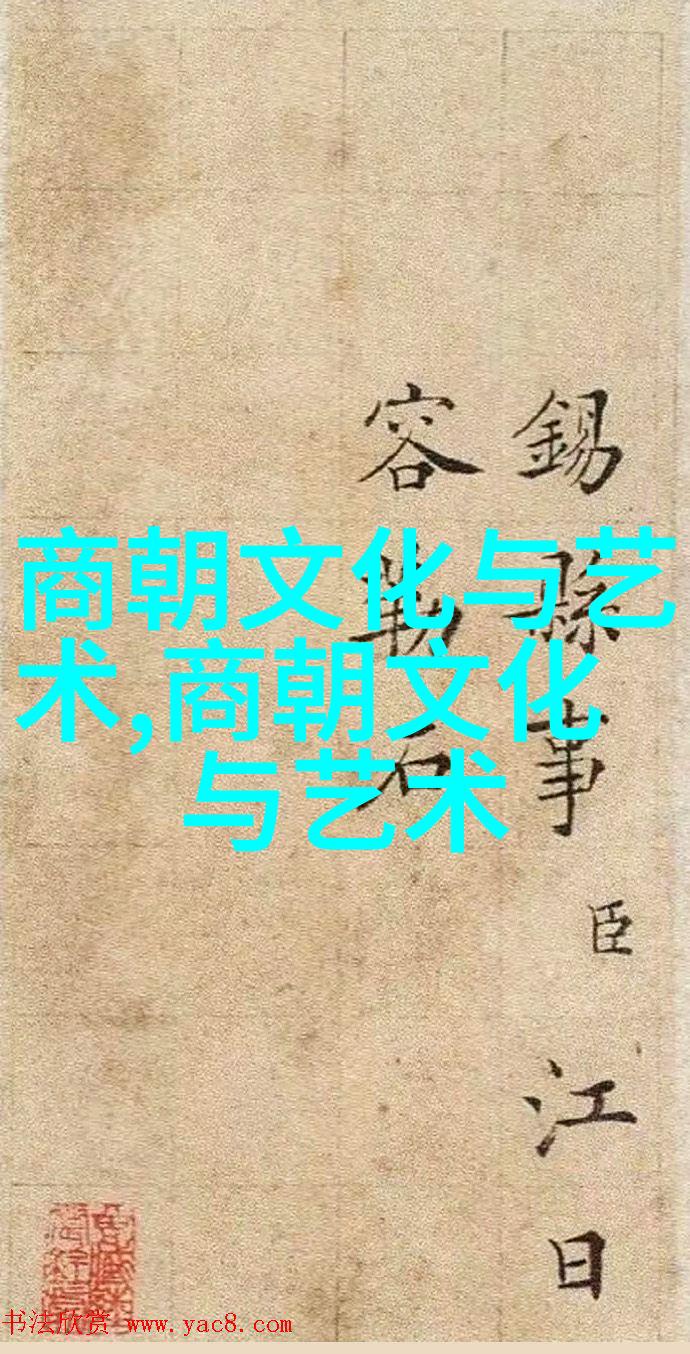 商朝文化与艺
术,商朝文化
与艺术
錫縣事臣江日
容勒石
书法欣赏 www.yac8.com